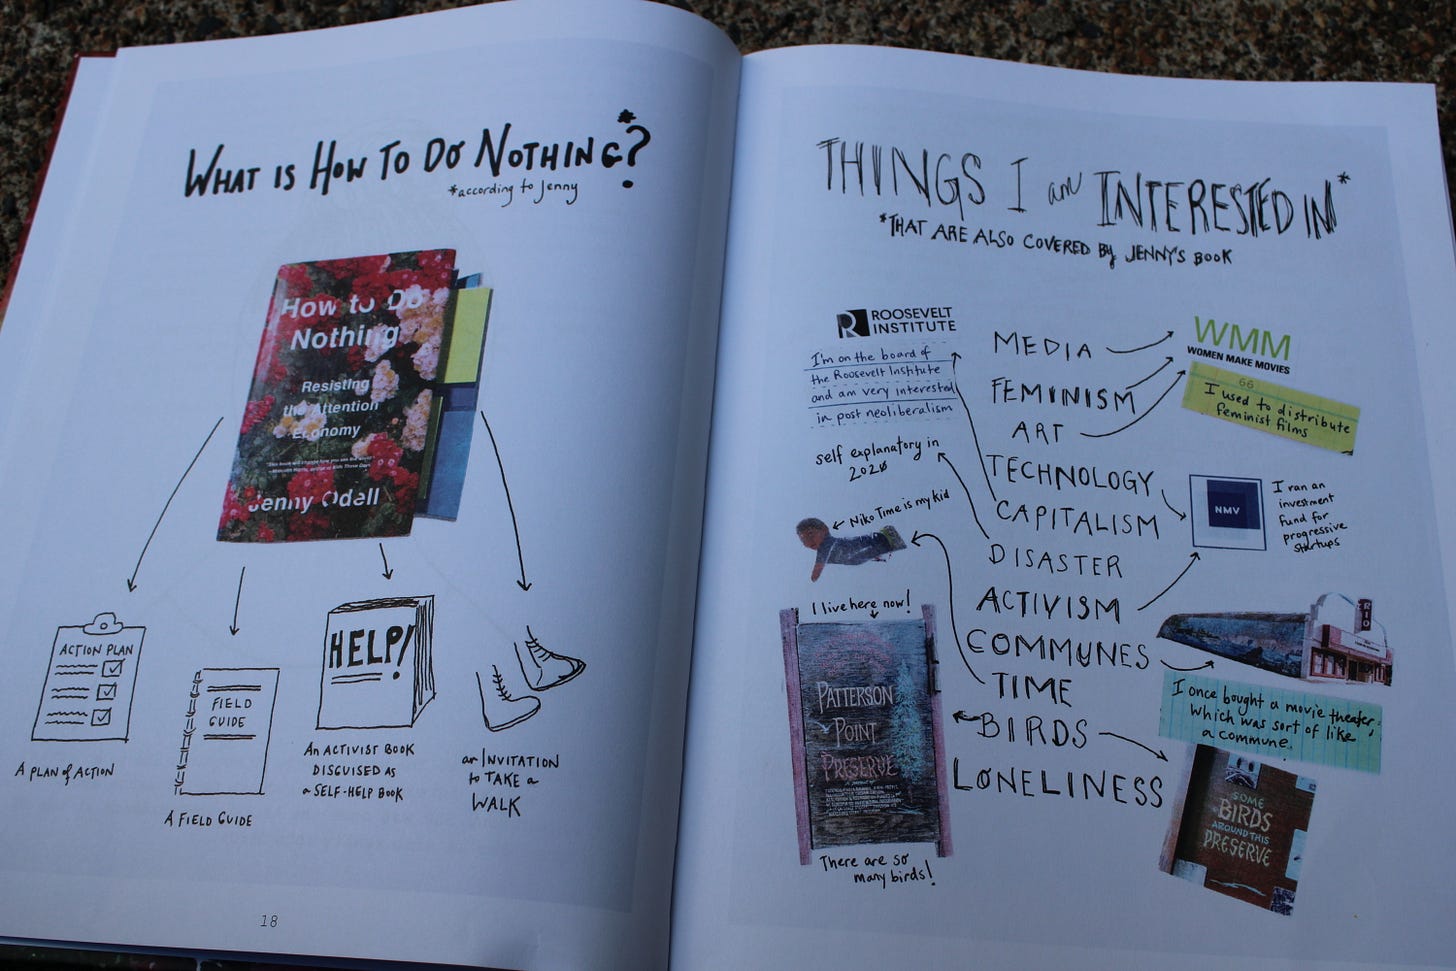 WHAT IS HOW TO DO NOTHING*?
*according to Jenny
How to Do
Nothing
Resisting
the Attention
Economy
Jenny Odell
ACTION PLAN
A PLAN of ACTION
FIELD
GUIDE
A FIELD GUIDE
HELP!
AN ACTIVIST BOOK
DISGUISED AS
a SELF-HELP BOOK
an INVITATION
to TAKE a
WALK
18
THINGS I am INTERESTED IN*
*THAT ARE ALSO COVERED By JENNY'S BOOK
ROOSEVELT
INSTITUTE
I'm on the board of
the Roosevelt Institute
and am very interested
in post neoliberalism
self explanatory in
2020
Niko Time is my kid
I live here now!
PATTERSON
POINT
PRESERVE
There are so
many birds!
MEDIA
FEMINISM
ART
TECHNOLOGY
CAPITALISM
DISASTER
ACTIVISM
COMMUNES
TIME
BIRDS
LONELINESS
WMM
WOMEN MAKE MOVIES
66
I used to distribute
feminist films
NMV
I ran an
investment
fund for
progressive
startups
RIO
I once bought a movie theater,
which was sort of like
a commune.
SOME
BIRDS
AROUND THIS
PRESERVE